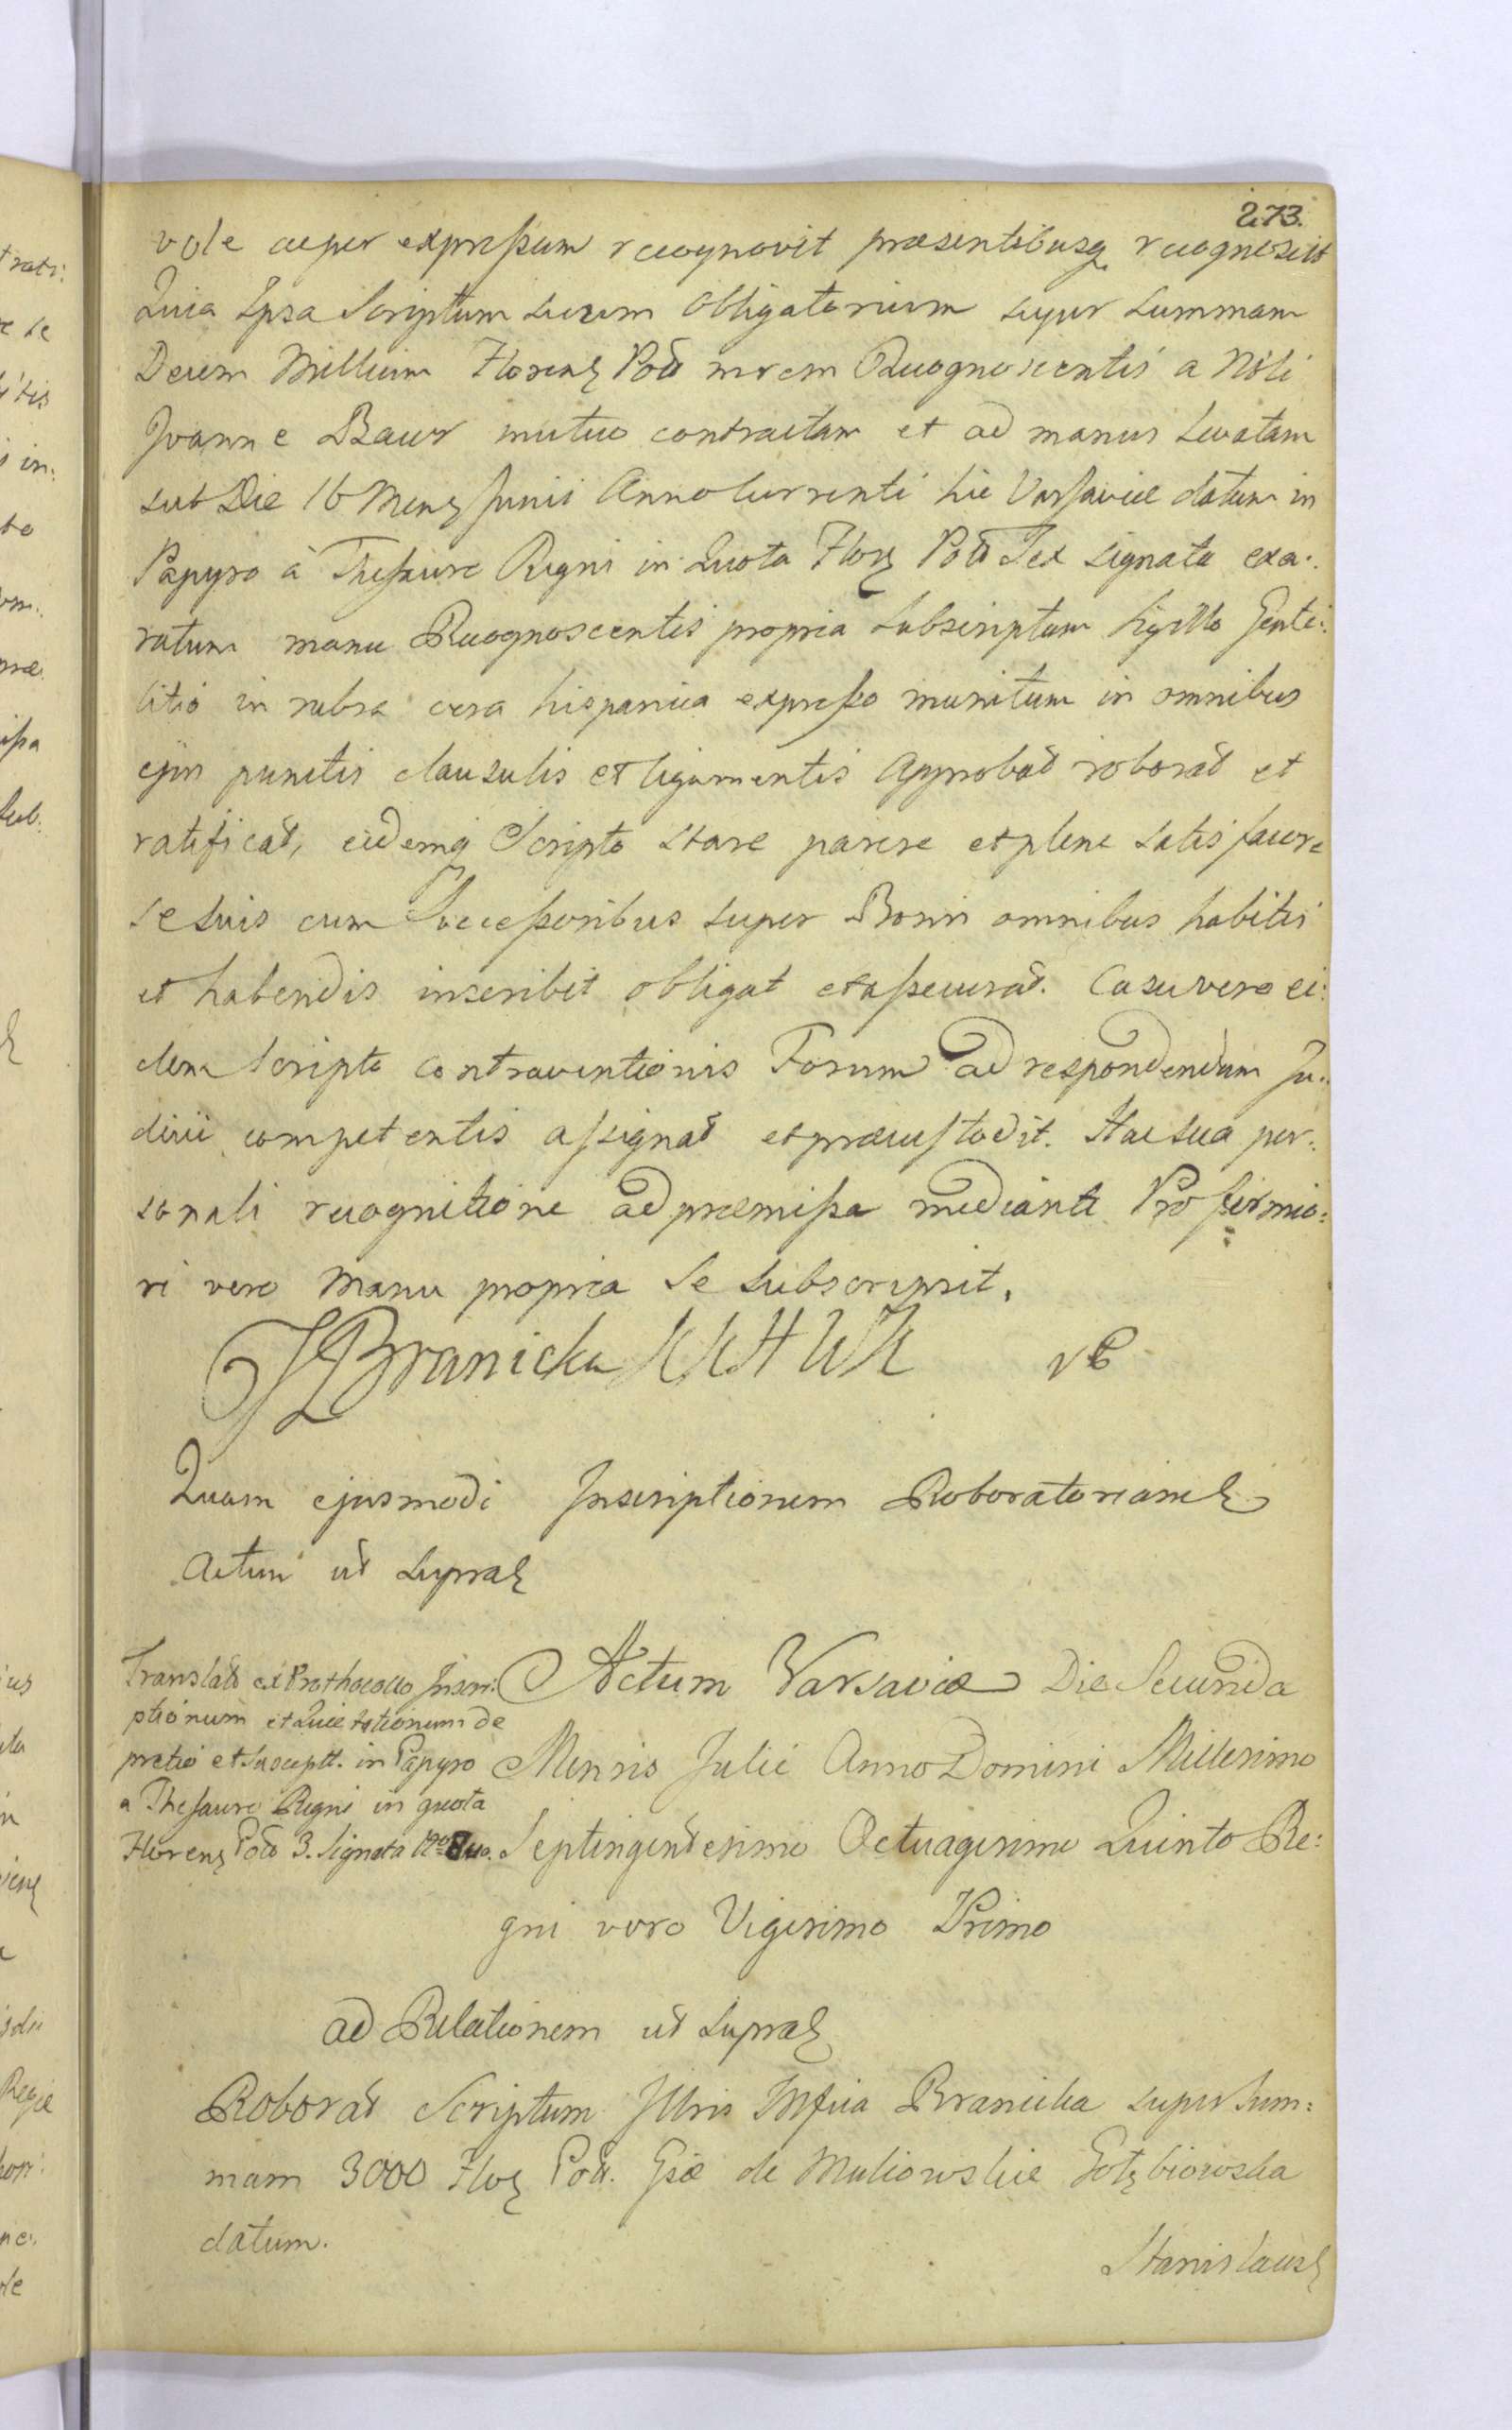 273.
vole ac per expressum recognovit præsentibusq recognoscit
Quia Ipsa Scriptum suum obligatorium super summam
Decem Millium Floren Poll mrem Recognoscentis a Nobli
Joanne Baur mutuo contractam et ad manus levatam
sub Die 16 Mens Junii Anno Currenti hic Varsaviæ datum in
Papyro à Thesauro Regni in Quota Flor Poll Sex signata exa:
ratum manu Recognoscentis propria subscriptum sigillo Genti:
litio in rubra cera hispanica expresso munitum in omnibus
ejus punctis clausulis et ligamentis approbat roborat et
ratificat, eidemq Scripto stare parere et plene satisfacere
se suis cum Successoribus super Bonis omnibus habitis
et habendis inscribit obligat et assecurat. Casu vero ei:
dem Scripto contraventionis Forum ad respondendum Ju:
dicii competentis assignat et præcustodit. Hac sua per:
sonali recognitione ad præmissa mediante Pro firmio:
ri vero manu propria se subscripsit.
Branicka
Quam ejusmodi Inscriptionem Roboratoriam
Actum ut supra
Translat ex Prothocollo Inscri:
ptionum et Quietationum de
pretio et Suscept. in Papyro
a Thesauro Regni in quota
Floren Poll 3. Signata
Actum Varsaviæ Die Secunda
Mensis Julii Anno Domini Millesimo
Septingentesimo Octuagesimo Quinto Re:
gni vero Vigesimo Primo
ad Relationem ut supra
Roborat Scriptum Illris Mfica Branicka super Sum:
mam 3000 Flo Poll. Gsæ de Muliowskie Gołębiowska
datum.
Stanislaus